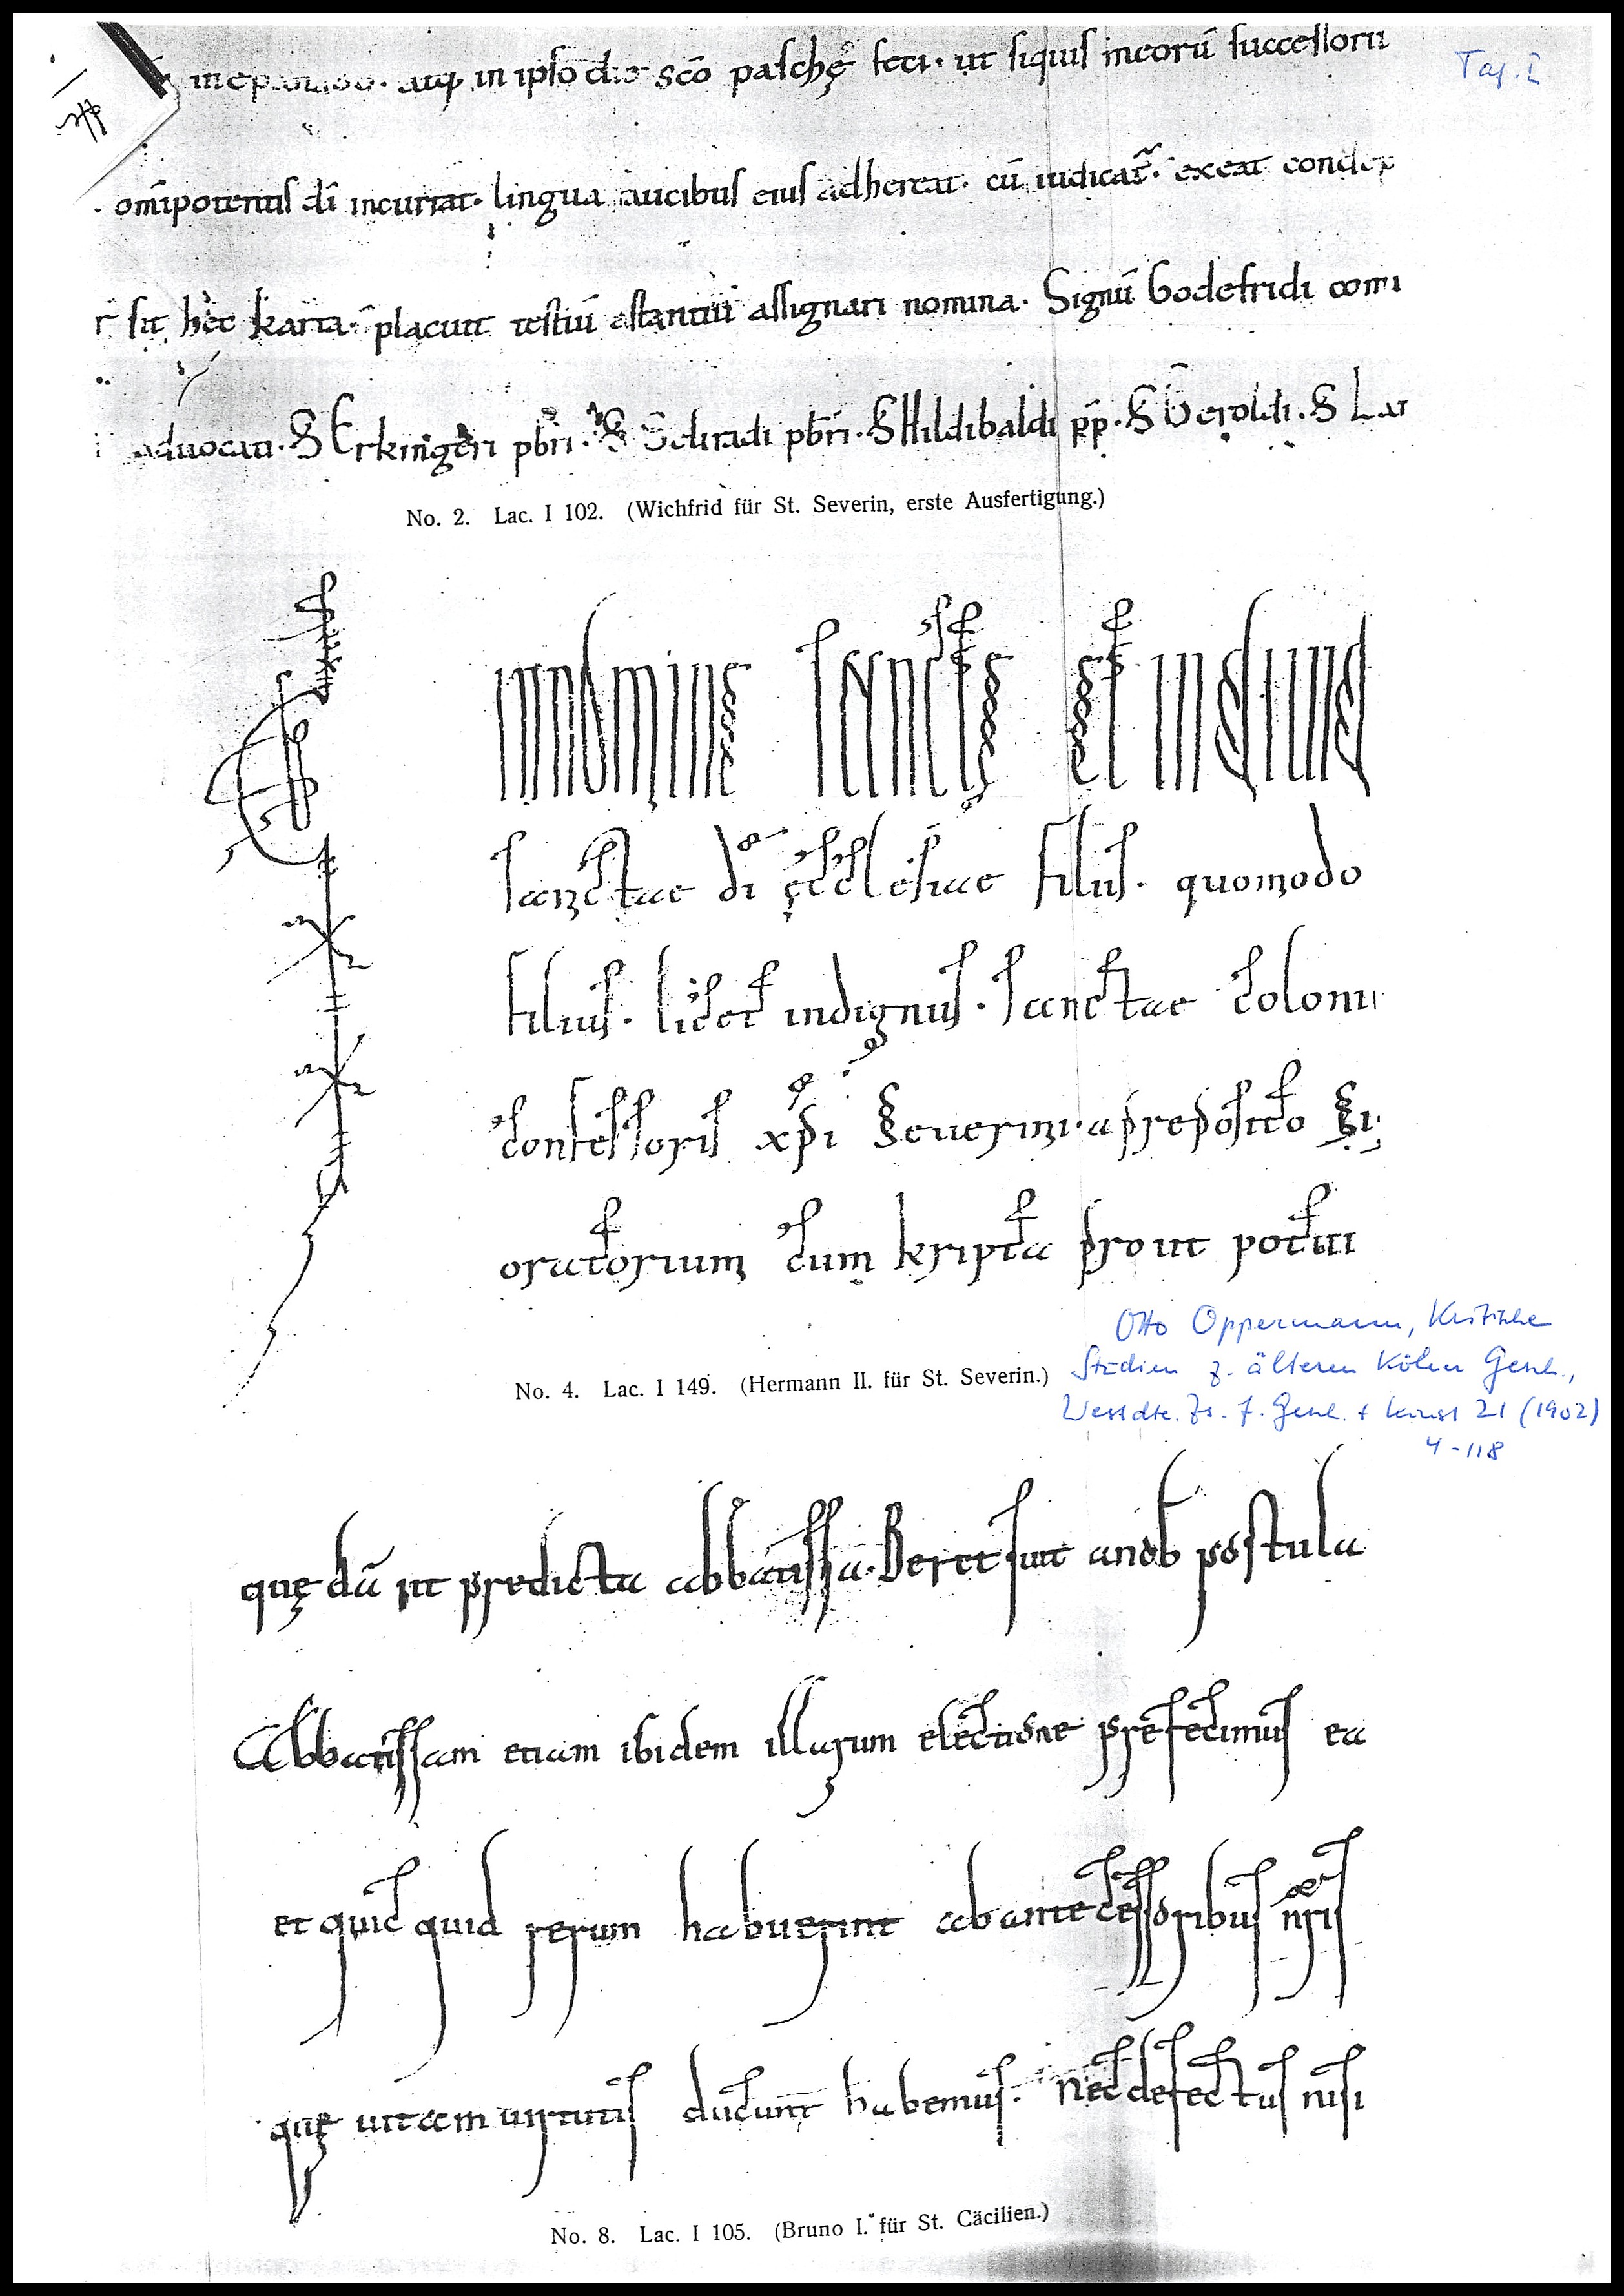 in ipso die scō paschę feci · ut siquis meorū successorū
Taf. I
omīpotentis dī incurrat · lingua faucibus eius adhereat · cū iudicat̄ · exeat condēp
r̄ sit hec karta · placuit testiū astantiū assignari nomina · Signū Godefridi comi
advocati · S Erkingeri pb̄ri · S pb̄ri · S Hildibaldi pp̄ · S Geroldi · S
No. 2. Lac. I 102. (Wichfrid für St. Severin, erste Ausfertigung.)
in nomine sanctę et indiuid
sanctae dī ęcclesiae filius · quomodo
filius · licet indignus · sanctae coloni
confessoris xp̄i Seuerini · a preposito Si
oratorium cum kripta prout potui
Otto Oppermann, Kritische
Studien z. älteren Kölner Gesch.,
Westdte. Zs. f. Gesch. + Kunst 21 (1902)
4-118
No. 4. Lac. I 149. (Hermann II. für St. Severin.)
quędā ut predicta abbatissa · Beretsuit a nob̄ postula
Abbatissam etiam ibidem illarum electione prefecimus ea
et quic quid rerum habuerint ab antecessoribus nr̄is
quę uitam uirtutis ducunt habemus · Nec defectus nisi
No. 8. Lac. I 105. (Bruno I. für St. Cäcilien.)